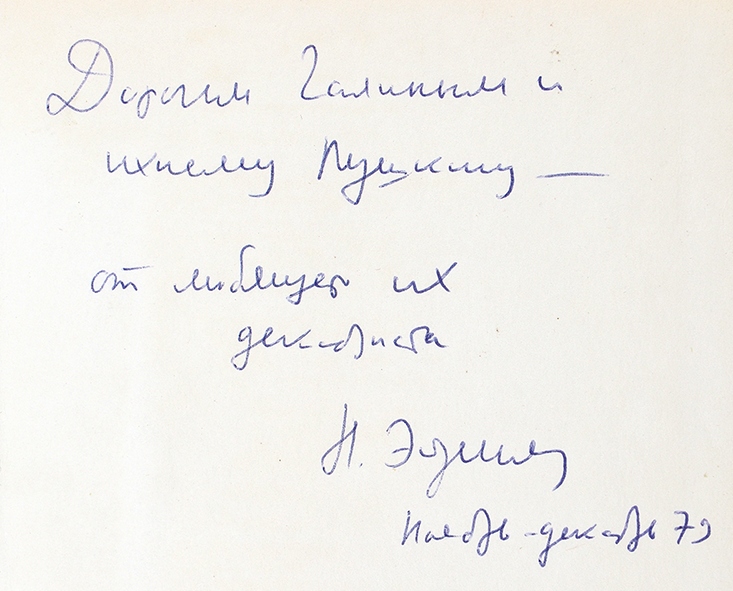 Дорогим Галиным и
ихнему Пушкину —
от любящего их
декабриста
Н. Эйдельман
Ноябрь-декабрь 79